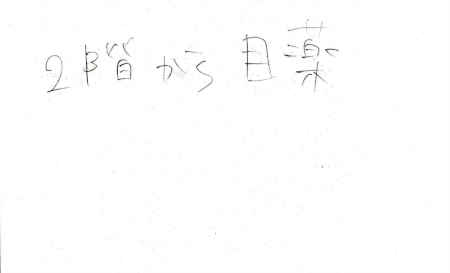 2階から目薬